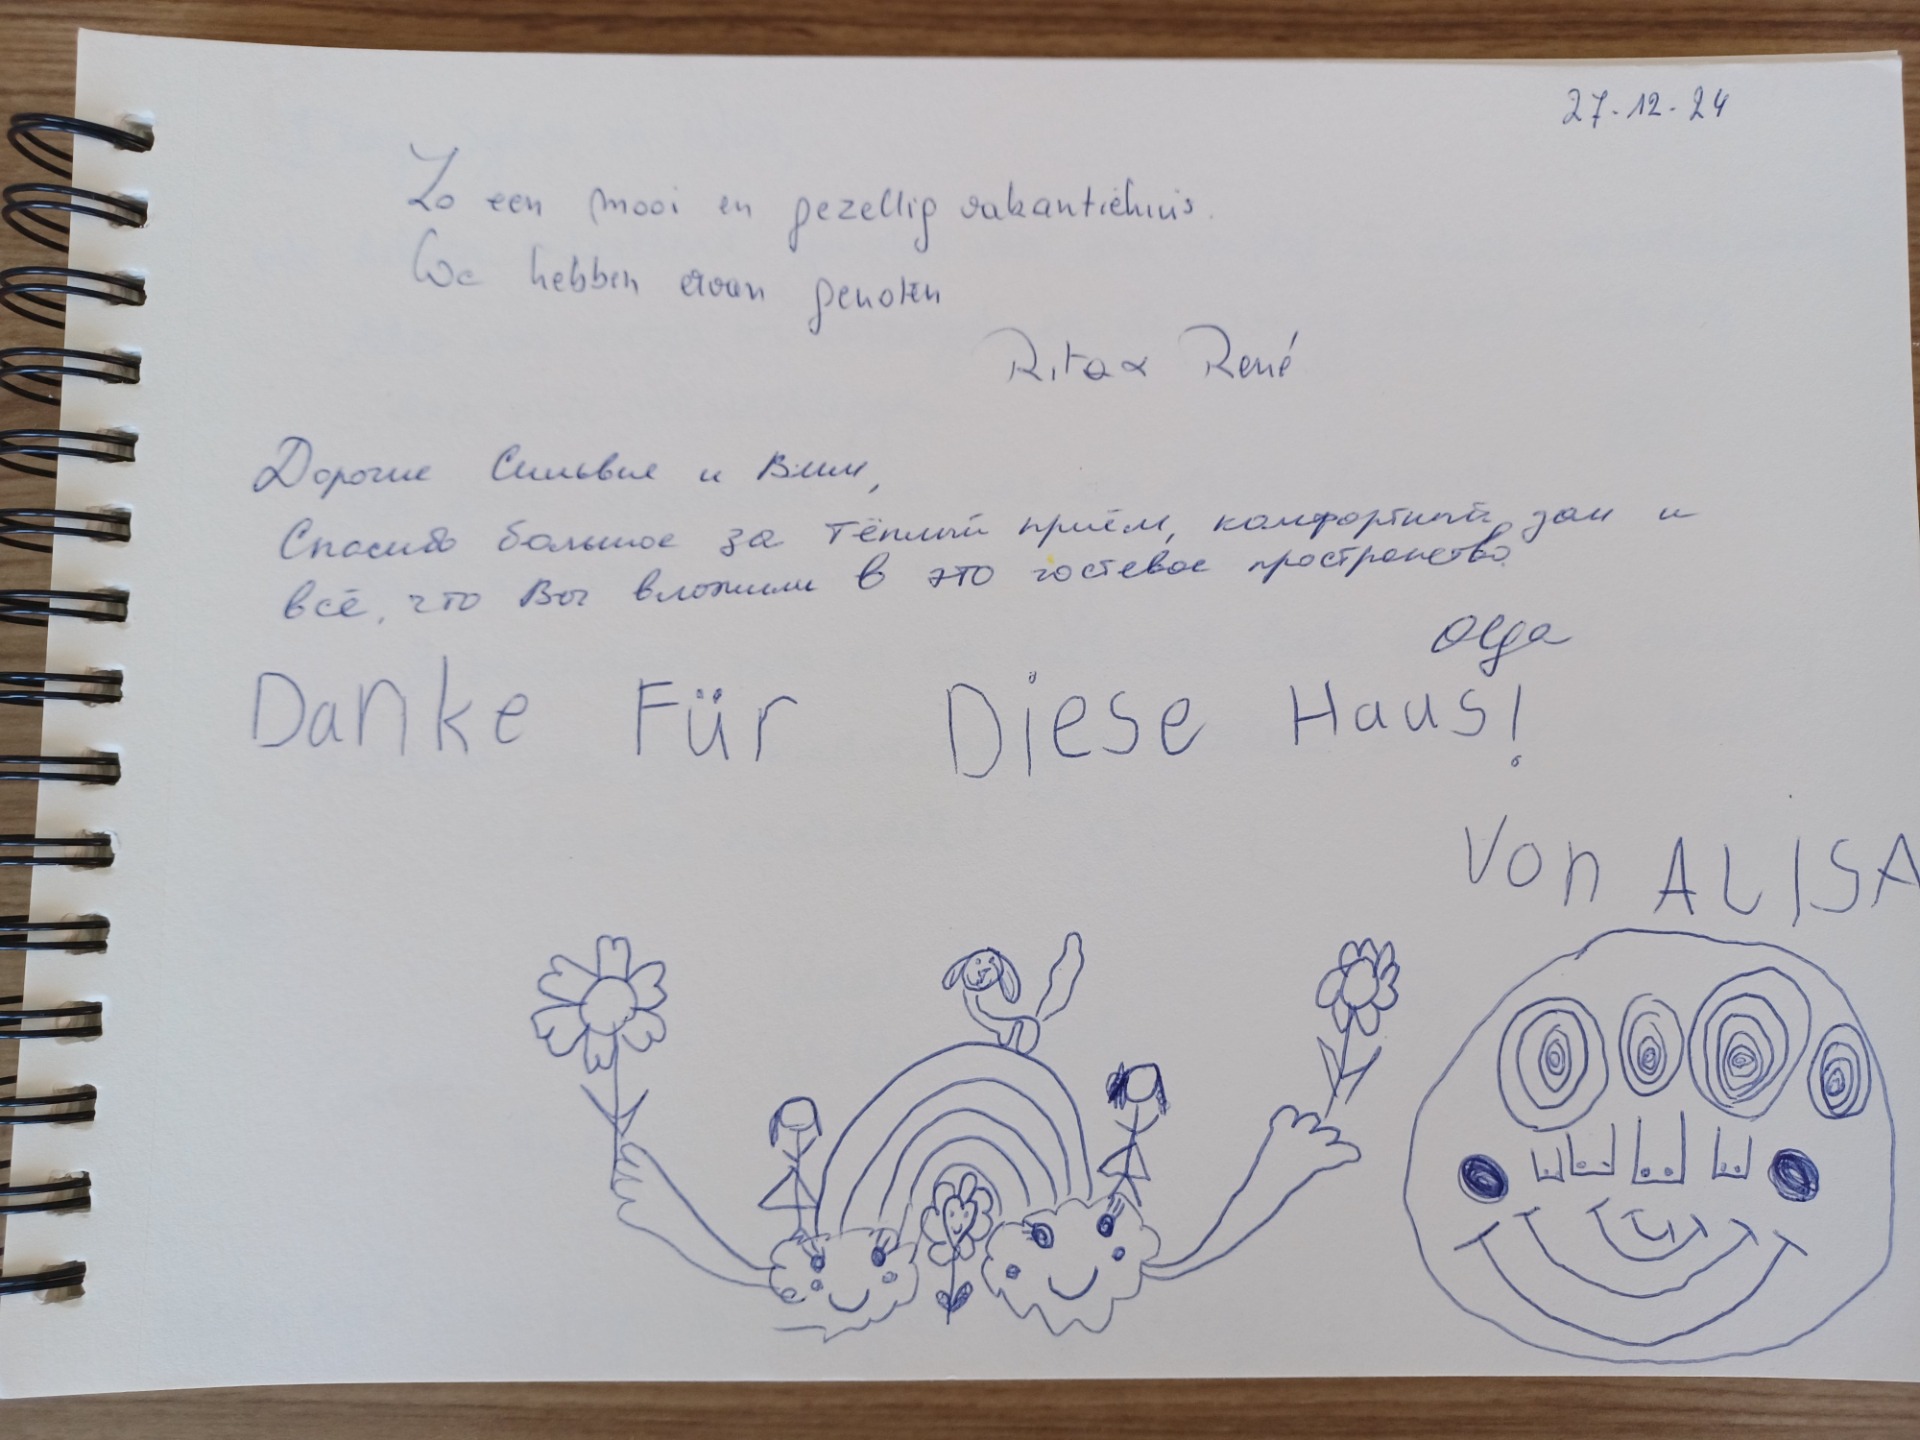 27-12-24
Zo een mooi en gezellig vakantiehuis.
We hebben ervan genoten
Rita & René
Дорогие Сильвие и Вим,
Спасибо большое за тёплый приём, комфортный дом и
всё, что Вы вложили в это гостевое пространство.
Olga
Danke Für Diese Haus!
Von ALISA